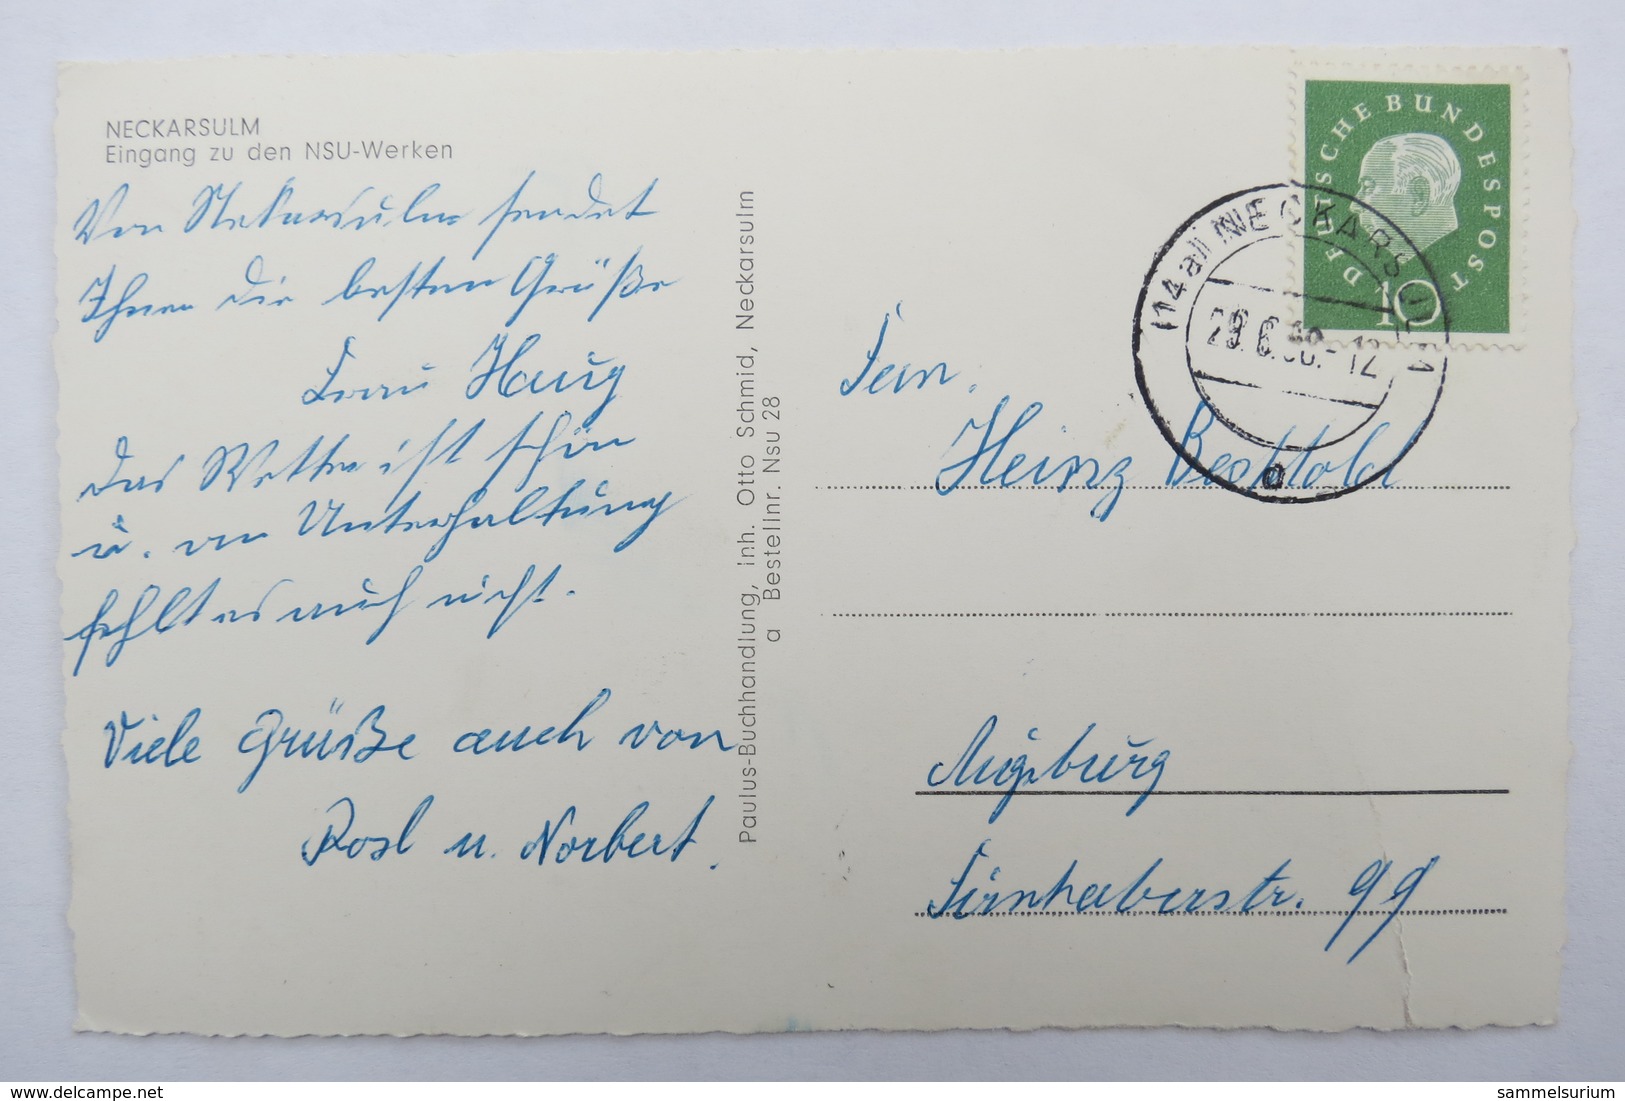 NECKARSULM
Eingang zu den NSU-Werken
Von Neckarsulm sendet
Ihnen die besten Grüße
Frau Haug
Das Wetter ist schön
u. an Unterhaltung
fehlt es auch nicht.
Viele Grüße auch von
Rosl u. Norbert.
Paulus-Buchhandlung, inh. Otto Schmid, Neckarsulm
a Bestellnr. Nsu 28
DEUTSCHE BUNDESPOST
10
(14a) NECKARSULM
6.60.-12
a
Fam.
Heinz Bechtold
Augsburg
99
delcampe.net
sammelsurium